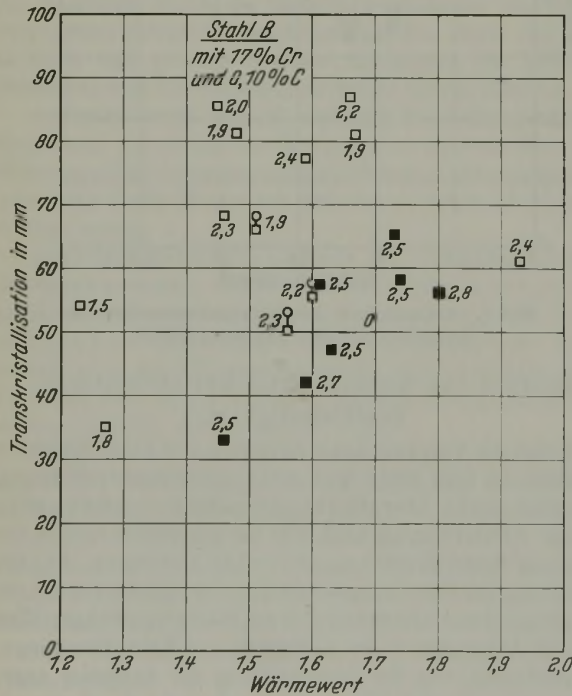 100
90
80
70
60
50
40
30
20
10
0
Transkristallisation in mm
Stahl B
mit 17% Cr
und 0,10% C
2,0
1,9
2,2
1,9
2,4
2,3
1,9
2,5
2,4
1,5
2,2
2,5
2,5
2,8
2,3
0
2,5
2,7
1,8
2,5
1,2
1,3
1,4
1,5
1,6
1,7
1,8
1,9
2,0
Wärmewert